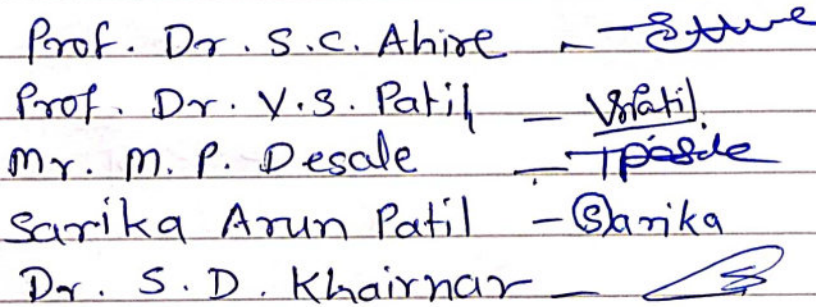 Prof. Dr. S.C. Ahire -
Prof. Dr. V.S. Patil - VSPatil.
Mr. M. P. Desale -
Sarika Arun Patil - Sarika
Dr. S. D. Khairnar -